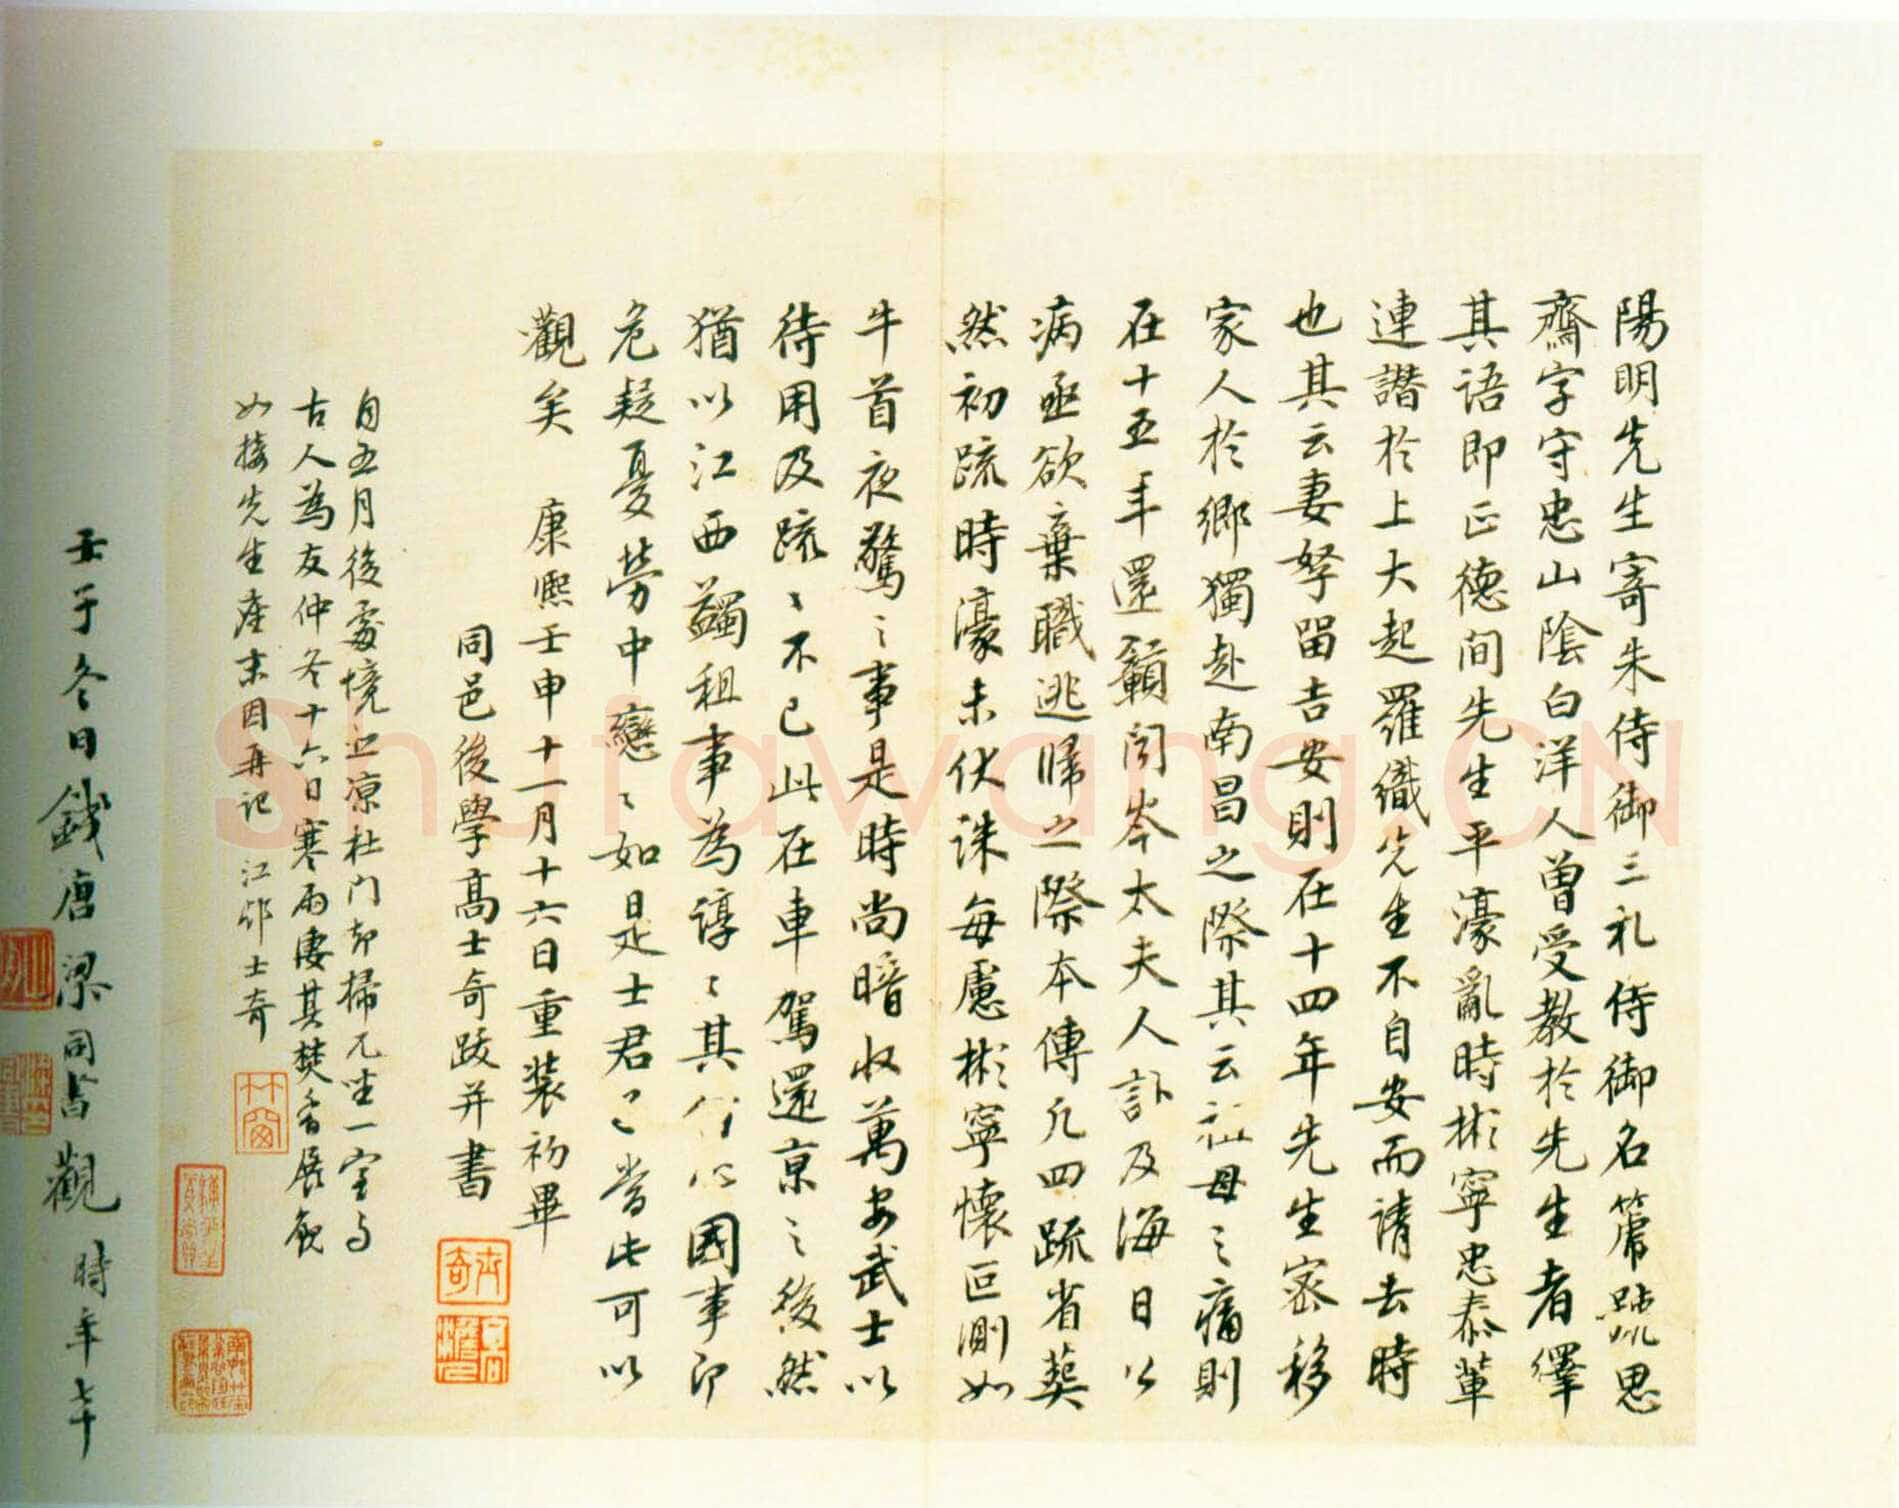 陽明先生寄朱侍御三札侍御名箎號思
齋字守忠山陰白洋人曾受教於先生者繹
其語即正德間先生平濠亂時彬寧忠泰輩
連譖於上大起羅織先生不自安而請去時
也其云妻孥留吉安則在十四年先生密移
家人於鄉獨赴南昌之際其云祖母之痛則
在十五年還贛聞岑太夫人訃及海日公
病亟欲棄職逃歸之際本傳凡四疏省葬
然初疏時濠未伏誅每慮彬寧懷叵測如
牛首夜驚之事是時尚暗收萬安武士以
待用及疏疏不已此在車駕還京之後然
猶以江西蠲租事為諄諄其以國事印
危疑憂勞中戀戀如是士君子當此可以
觀矣 康熙壬申十一月十六日重裝初畢
同邑後學高士奇跋并書
自五月後處境淒涼杜門却掃兀坐一室与
古人為友仲冬十六日寒雨淒其焚香展觀
如接先生座末因再記 江邨士奇
竹窗
士奇
壬子冬日錢唐梁同書觀時年七十
Shufawang.CN